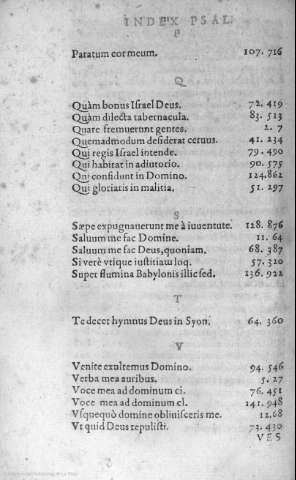 INDEX PSAL.
P
Paratum cor meum. 107. 716
Q
Quàm bonus Israel Deus. 72. 419
Quàm dilecta tabernacula. 83. 513
Quare fremuerunt gentes. 2. 7
Quemadmodum desiderat ceruus. 41. 234
Qui regis Israel intende. 79. 490
Qui habitat in adiutorio. 90. 575
Qui confidunt in Domino. 124. 862
Qui gloriaris in malitia. 51. 297
S
Sæpe expugnauerunt me à iuuentute. 128. 876
Saluum me fac Domine. 11. 64
Saluum me fac Deus, quoniam. 68. 387
Si verè vtique iustitiam loq. 57. 320
Super flumina Babylonis illic sed. 136. 922
T
Te decet hymnus Deus in Syon. 64. 360
V
Venite exultemus Domino. 94. 546
Verba mea auribus. 5. 27
Voce mea ad dominum ci. 76. 451
Voce mea ad dominum cl. 141. 948
Vsquequò domine obliuisceris me. 12. 68
Vt quid Deus repulisti. 73. 430
VES